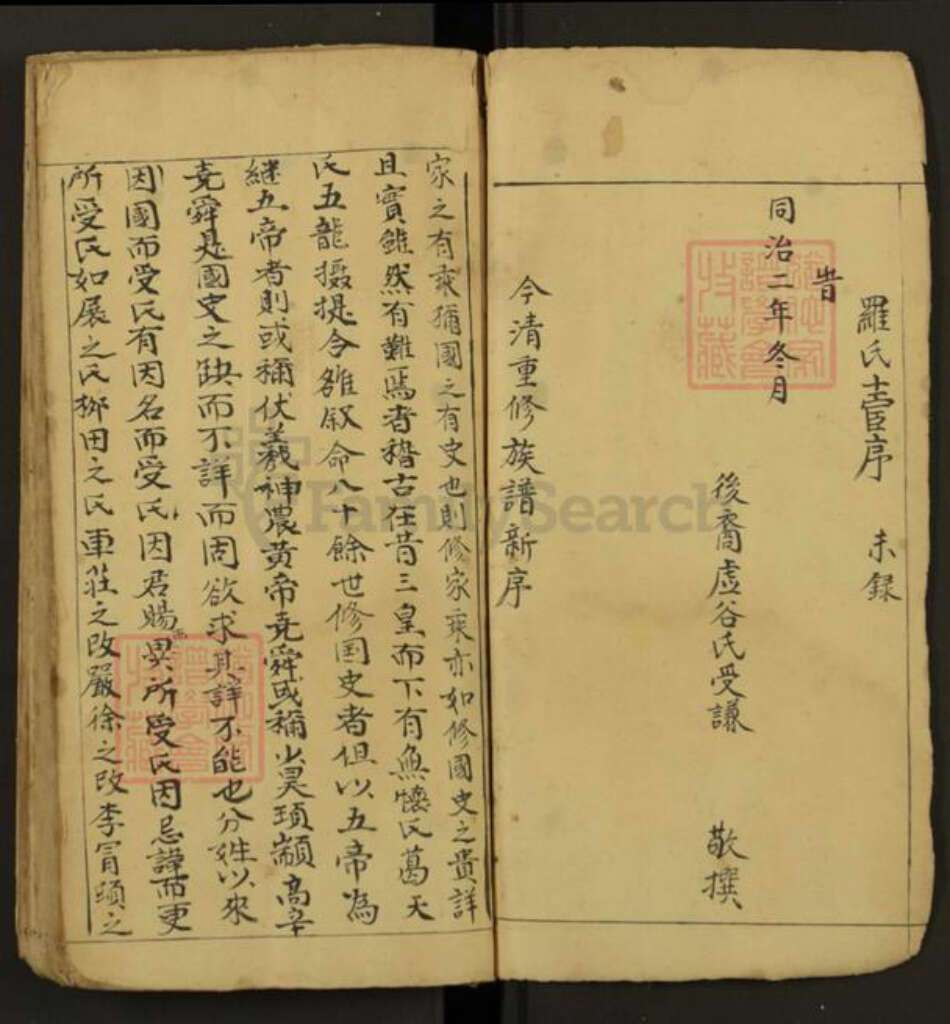 羅氏壹序 未錄
旹
同治二年冬月
後裔虛谷氏受謙 敬撰
今清重修族譜新序
家之有乘猶國之有史也則修家乘亦如修國史之貴詳
且實雖然有難焉者稽古在昔三皇而下有無懷氏葛天
氏五龍攝提合雒叙命八十餘世修国史者但以五帝為
継五帝者則或稱伏羲神農黃帝堯舜或稱少昊頊顓高辛
堯舜是國史之缺而不詳而固欲求其詳不能也分姓以來
因國而受氏有因名而受氏因君賜異所受氏因忌諱而更
所受氏如展之氏柳田之氏車莊之改嚴徐之改李冒頭之
FamilySearch